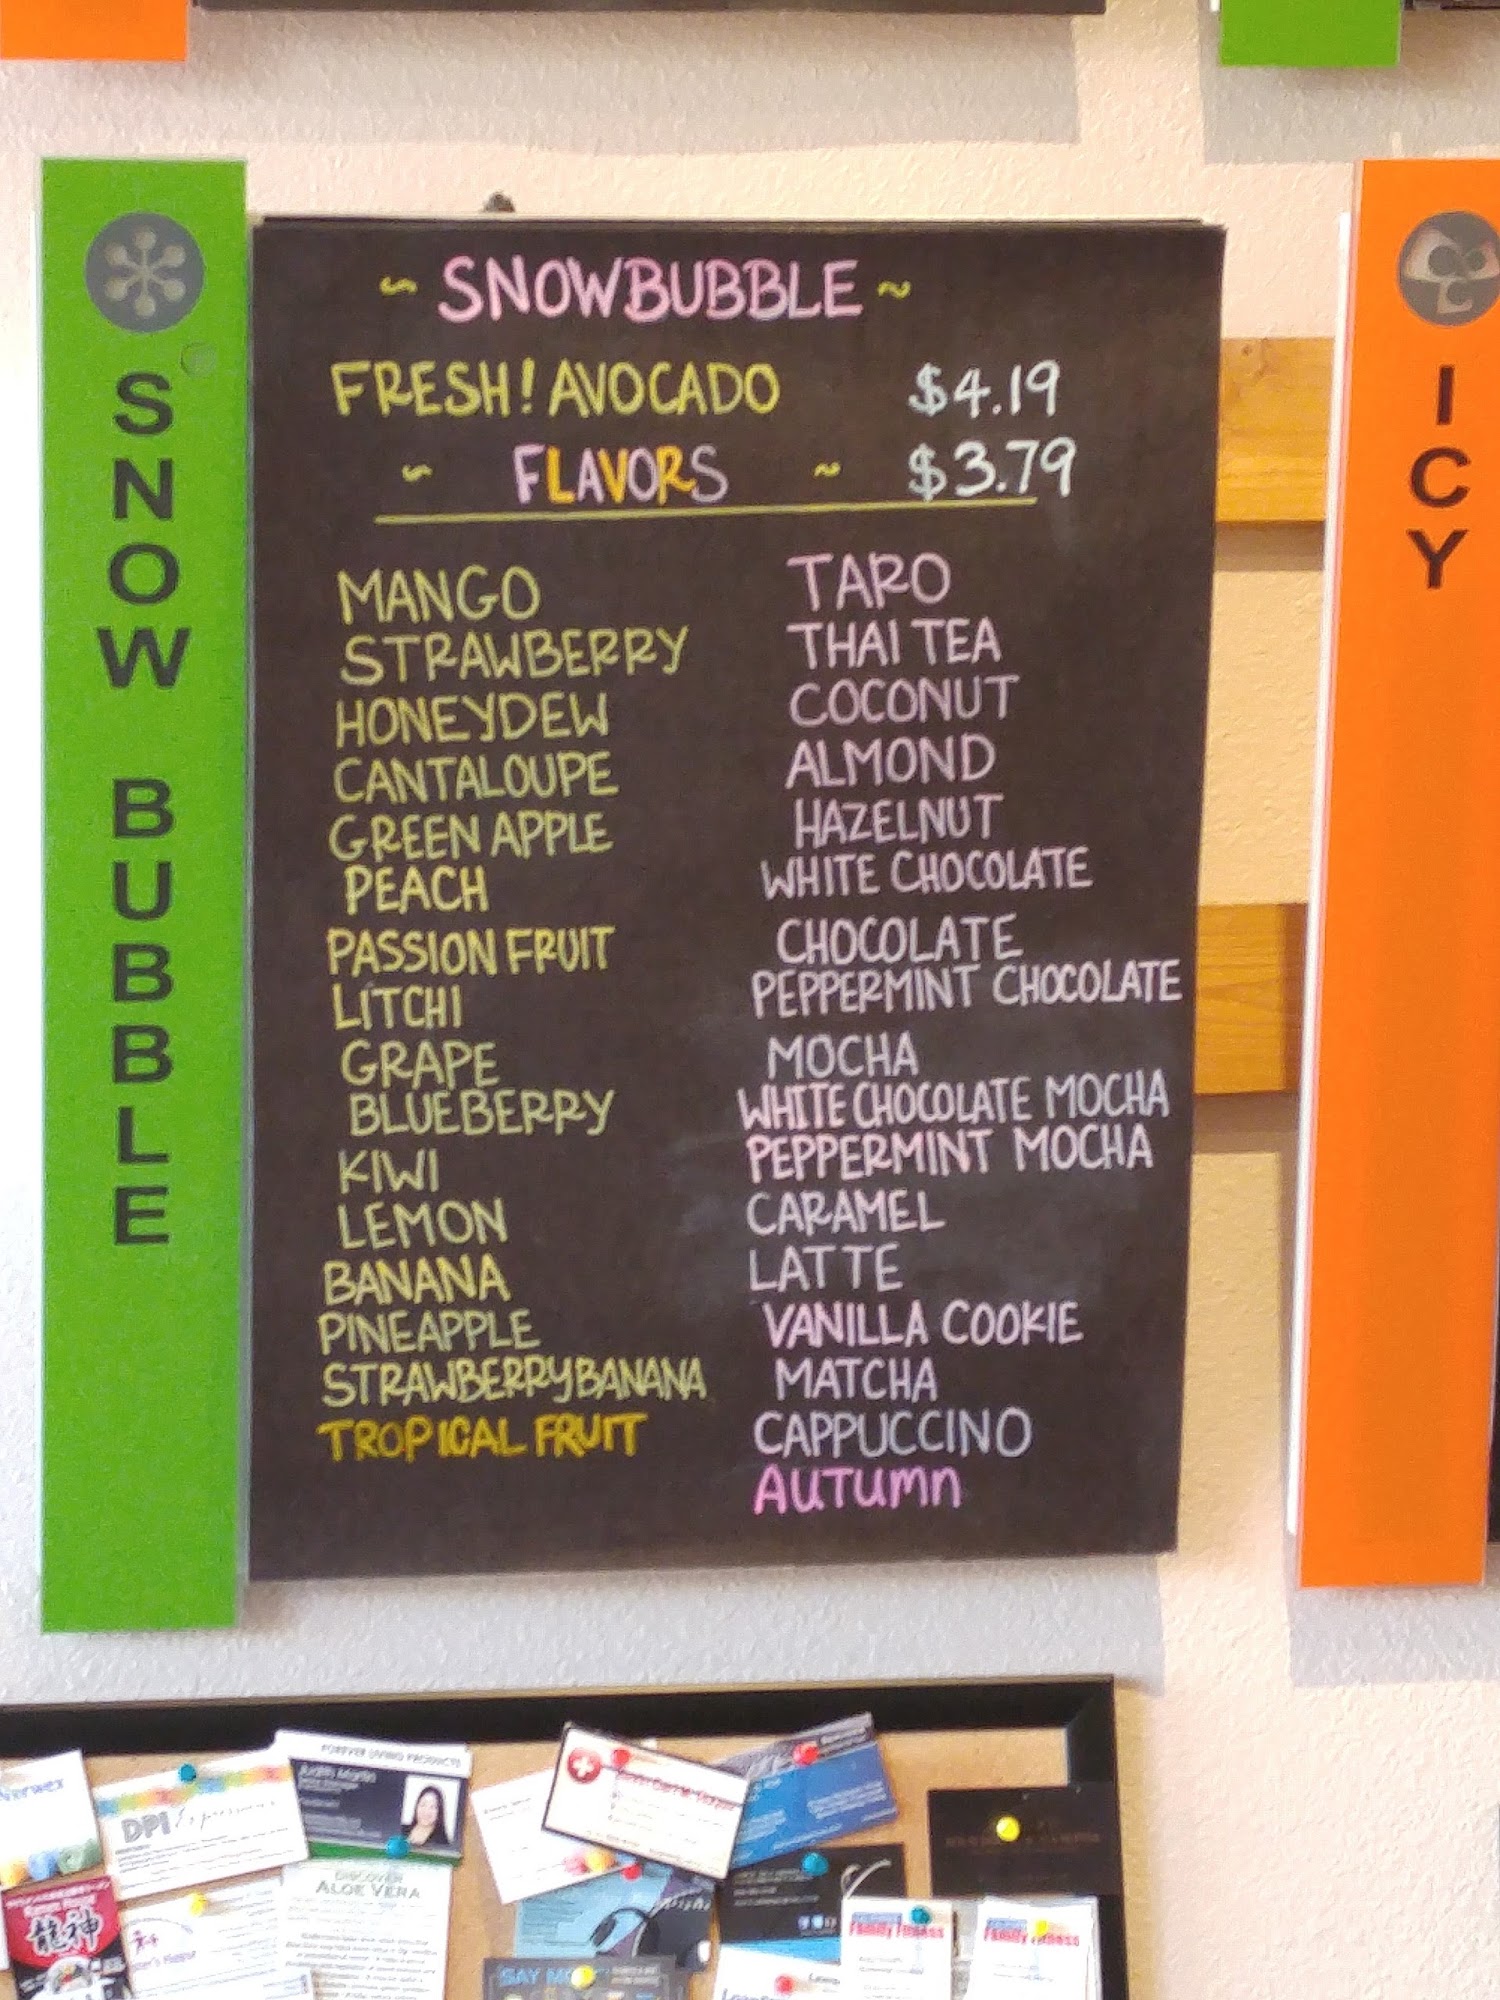 SNOW BUBBLE
~ SNOWBUBBLE ~
FRESH! AVOCADO $4.19
~ FLAVORS ~ $3.79
MANGO
STRAWBERRY
HONEYDEW
CANTALOUPE
GREEN APPLE
PEACH
PASSION FRUIT
LITCHI
GRAPE
BLUEBERRY
KIWI
LEMON
BANANA
PINEAPPLE
STRAWBERRY BANANA
TROPICAL FRUIT
TARO
THAI TEA
COCONUT
ALMOND
HAZELNUT
WHITE CHOCOLATE
CHOCOLATE
PEPPERMINT CHOCOLATE
MOCHA
WHITE CHOCOLATE MOCHA
PEPPERMINT MOCHA
CARAMEL
LATTE
VANILLA COOKIE
MATCHA
CAPPUCCINO
AUTUMN
ICY
Norwex
DPI
FOREVER LIVING PRODUCTS
Judith Martin
DISCOVER
ALOE VERA
龍神
SAY
Family Fitness
Family Fitness